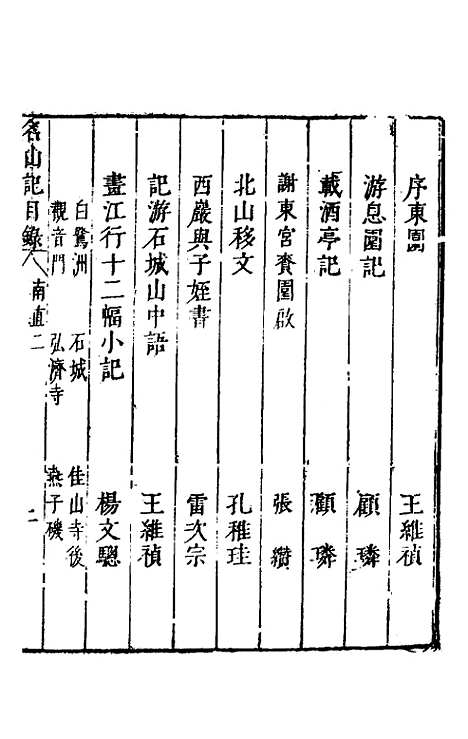 序東園　王維禎
游息園記　顧璘
載酒亭記　顧璘
謝東宮賚園啟　張纘
北山移文　孔稚珪
西巖與子姪書　雷次宗
記游石城山中語　王維禎
畫江行十二幅小記　楊文驄
白鷺洲　石城　佳山寺後
觀音門　弘濟寺　燕子磯
名山記目錄　八　南直二　二